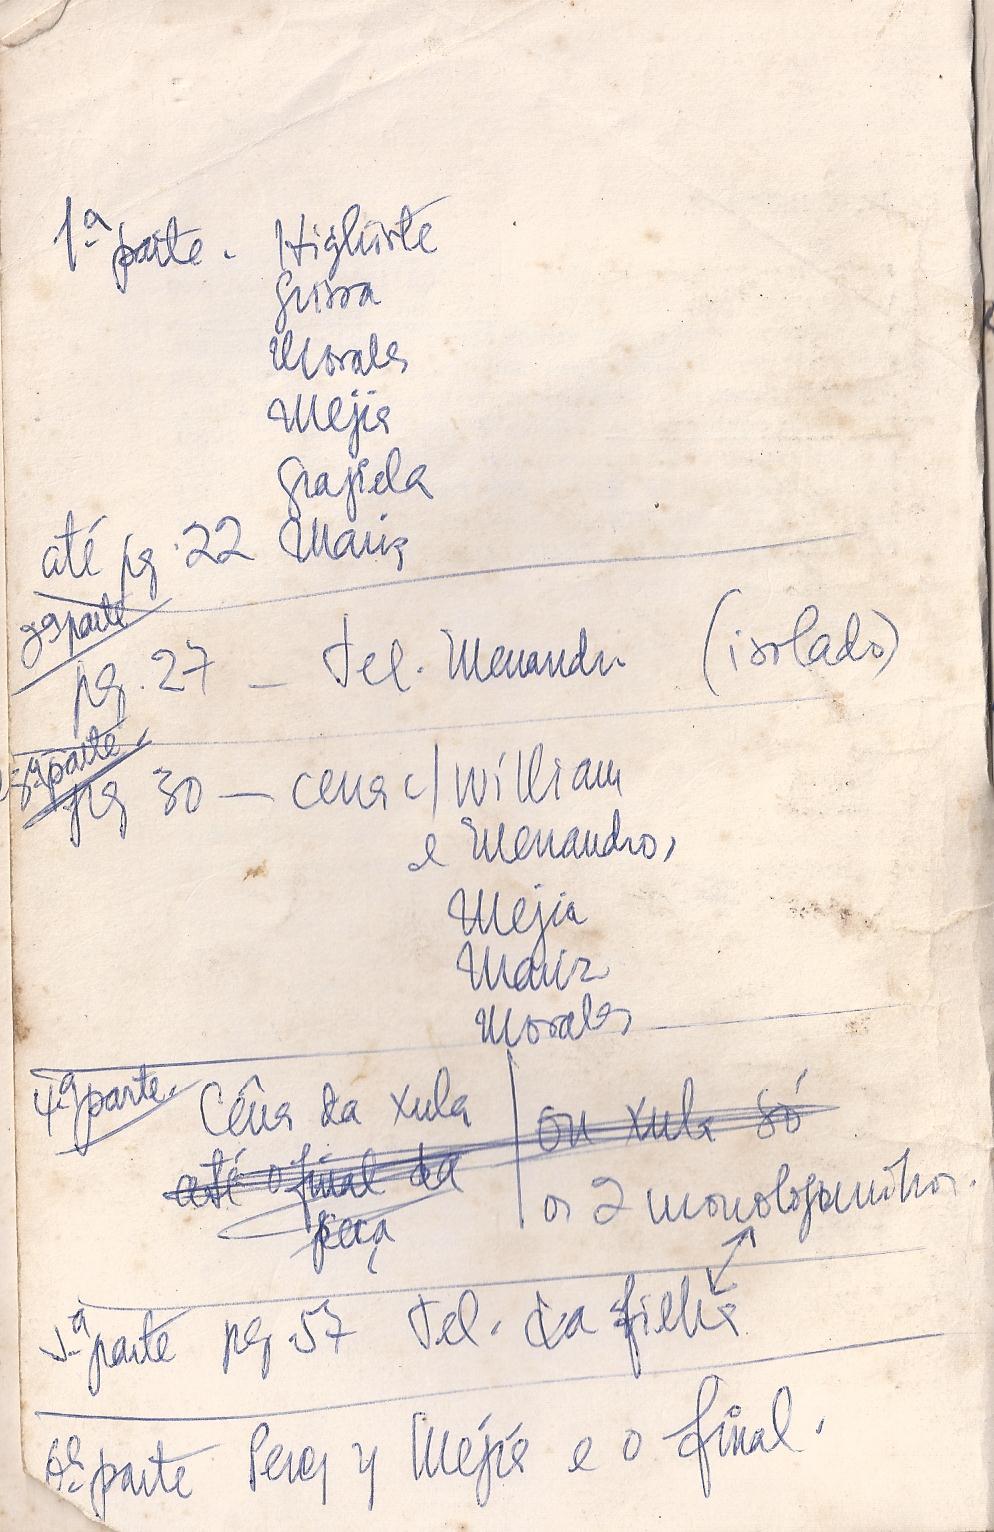 1ª parte. Highirte
Grissa
Morales
Mejia
Grajiela
até pg. 22 Mariz
2ª parte
pg. 27 — tel. Menandro (isolado)
3ª parte
pg 30 — cena c/ William
e Menandro,
Mejia
Mariz
Morales
4ª parte. Cêna da Xula
ou Xula só
até o final da
peça
os 2 monologuinhos.
5ª parte pg. 57 tel. da filha
6ª parte Perez y Mejia e o final.